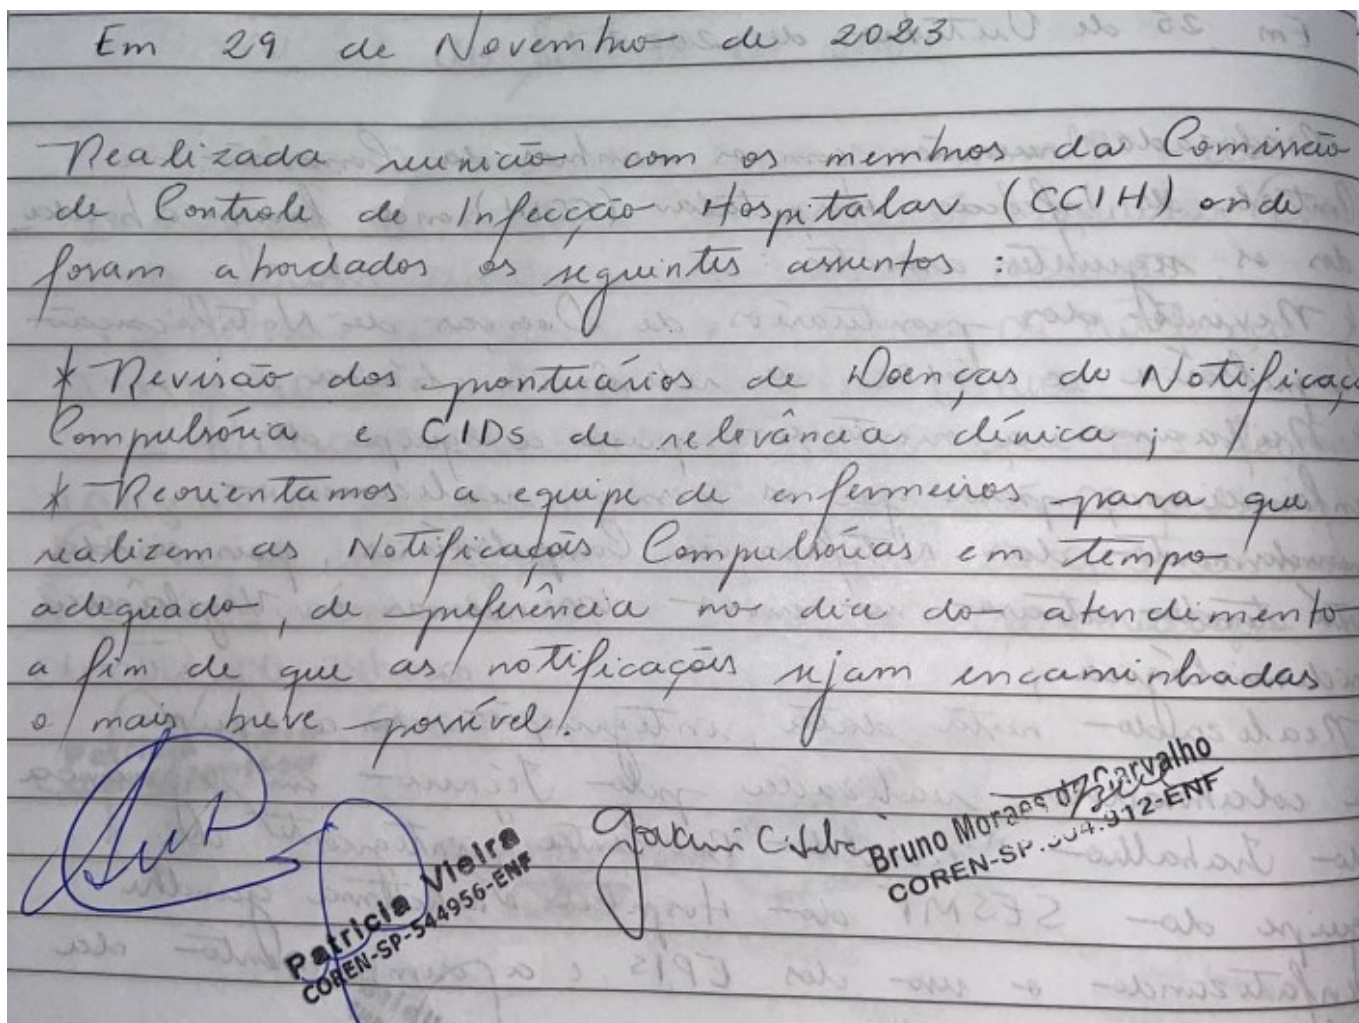 Em 29 de Novembro de 2023
Realizada reunião com os membros da Comissão
de Controle de Infecção Hospitalar (CCIH) onde
foram abordados os seguintes assuntos:
* Revisão dos prontuários de Doenças de Notificaç
Compulsória e CIDs de relevância clínica;
* Reorientamos a equipe de enfermeiros para que
realizem as Notificações Compulsórias em tempo
adequado, de preferência no dia do atendimento
a fim de que as notificações sejam encaminhadas
o mais breve possível.
Patricia Vieira
COREN-SP-544956-ENF
Bruno Moraes de Carvalho
COREN-SP.912-ENF